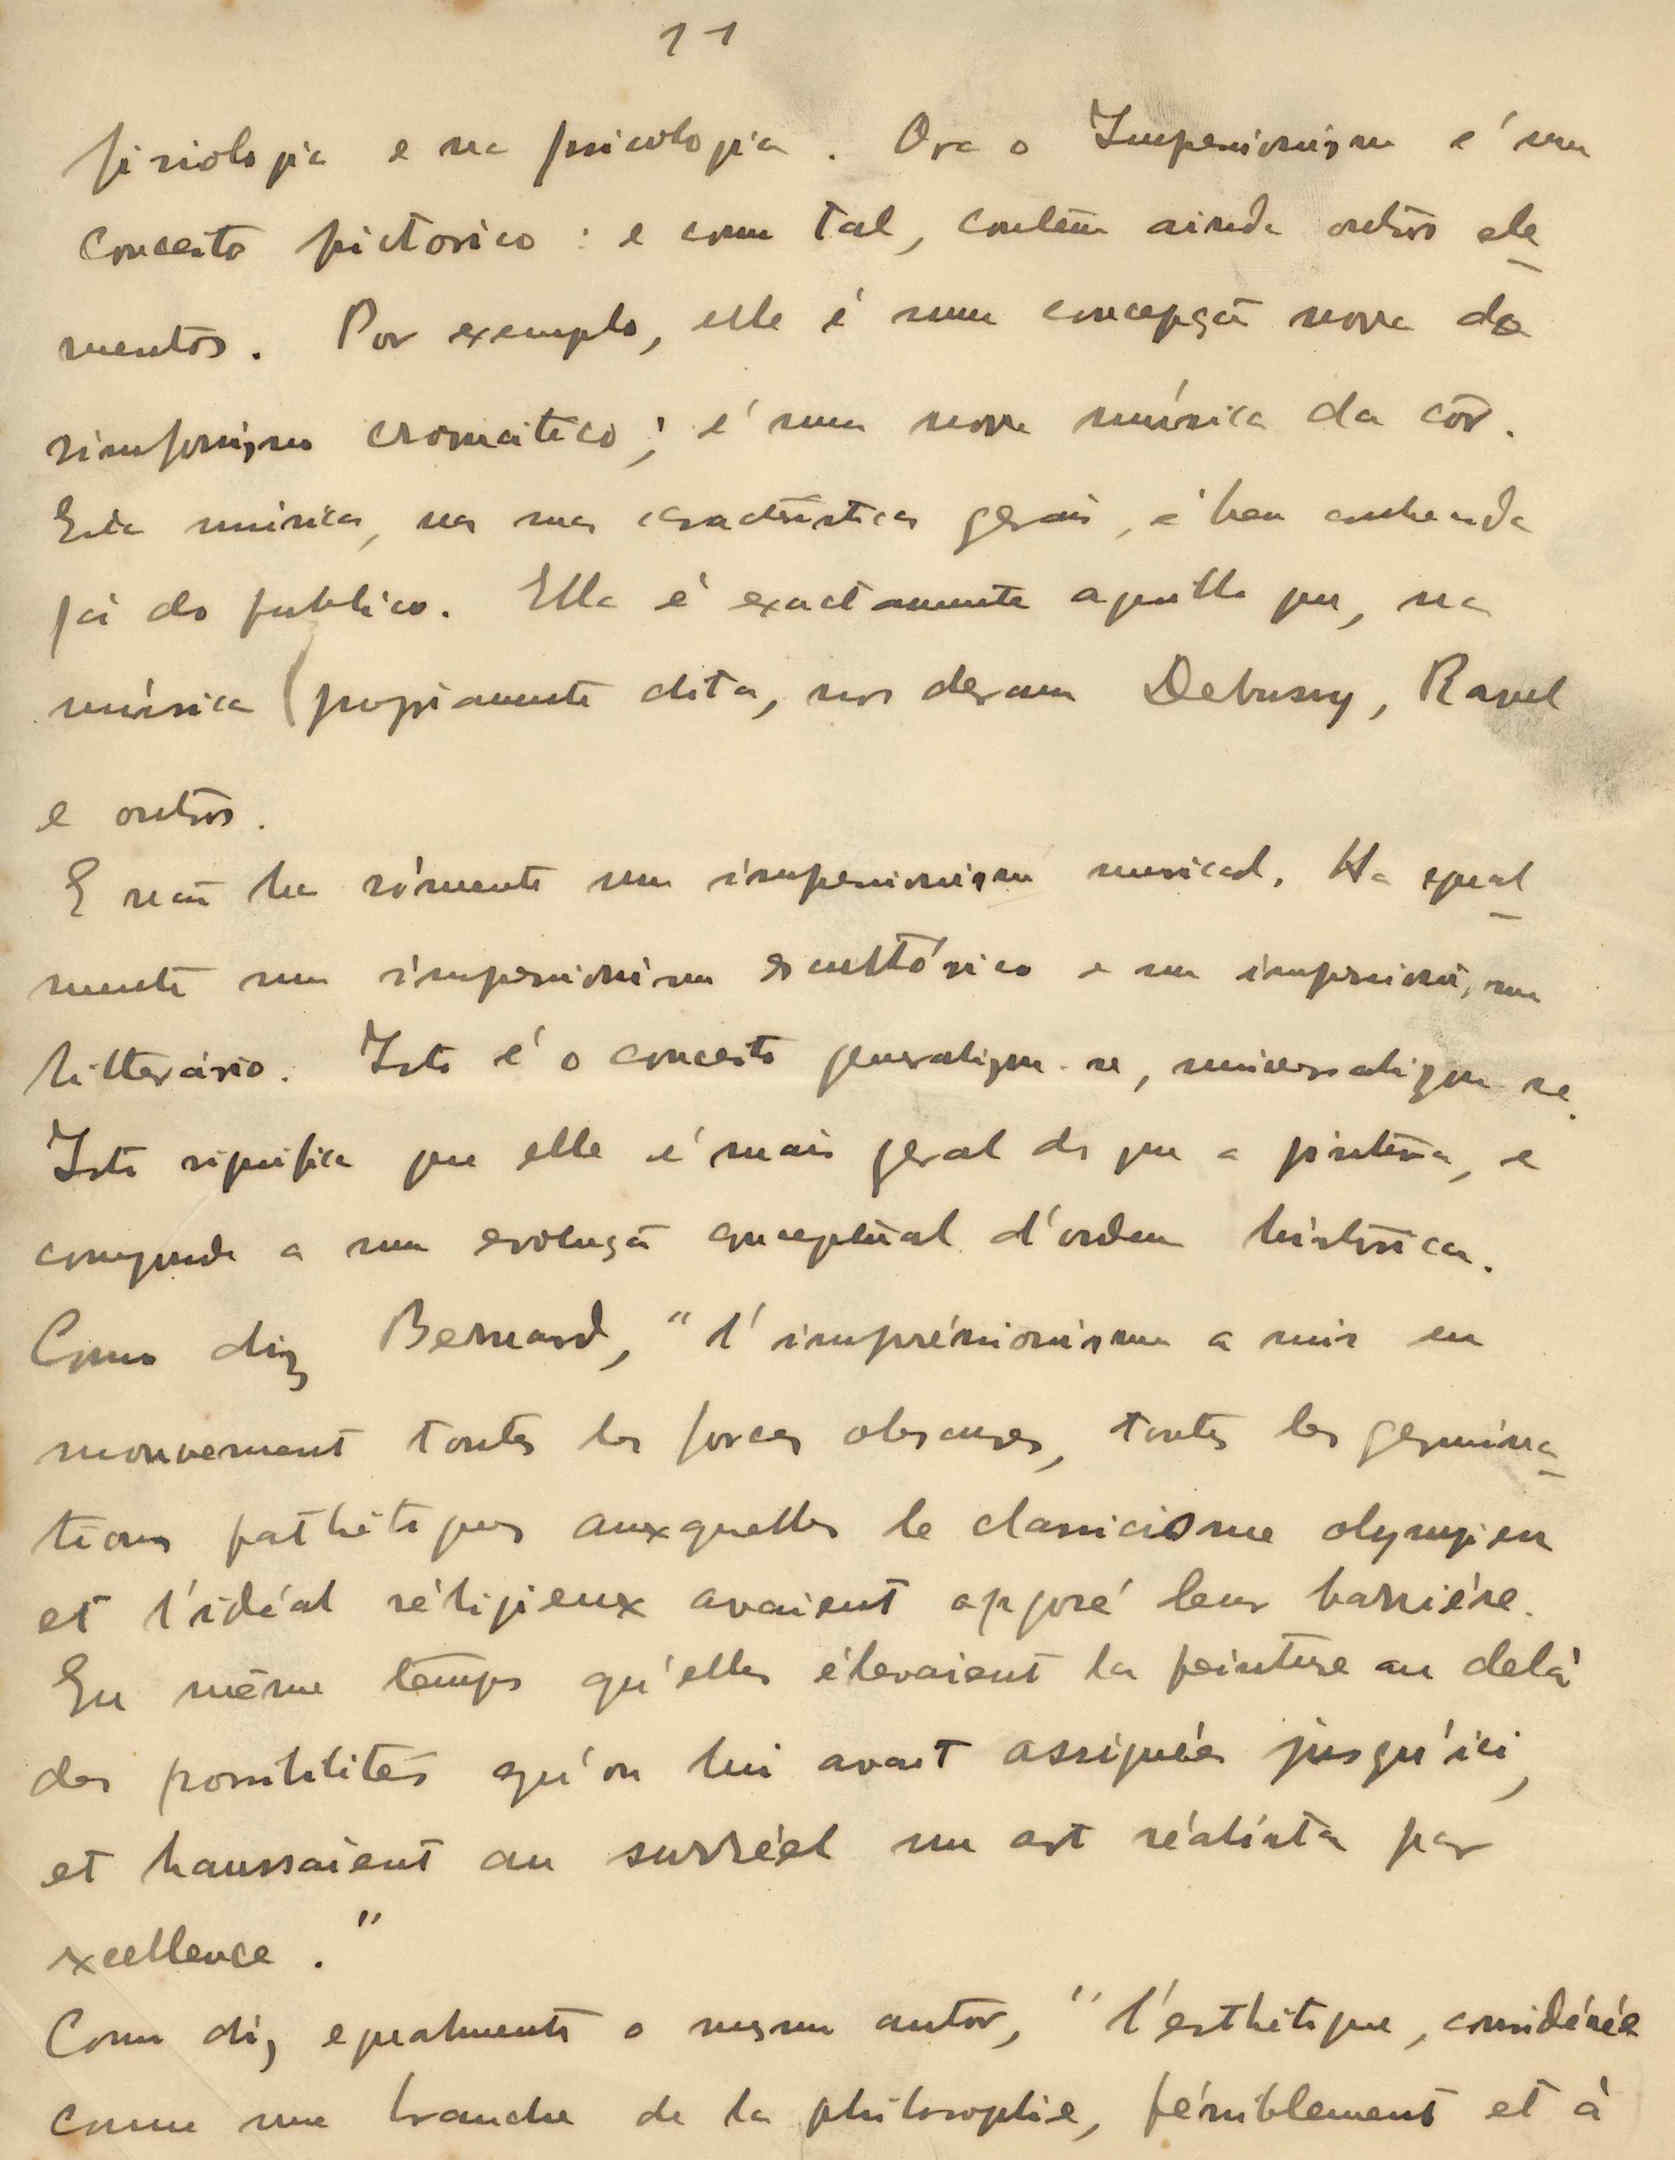 11
fisiologia e na psicologia. Ora o Impressionismo é um
conceito pictorico: e como tal, contém ainda outros ele-
mentos. Por exemplo, elle é uma concepção nova do
sinfonismo cromático; é uma nova música da côr.
Esta música, nas suas caracteristicas gerais, é bem conhecida
já do publico. Ella é exactamente aquella que, na
música propriamente dita, nos deram Debussy, Ravel
e outros.
E não ha sómente um impressionismo musical. Ha egual-
mente um impressionismo escultórico e um impressionismo
litterário. Isto é o conceito generalizou-se, universalizou-se.
Isto significa que elle é mais geral do que a pintura, e
corresponde a uma evolução conceptual d'ordem histórica.
Como diz Bernard, "l'impréssionisme a mis en
mouvement toutes les forces obscures, toutes les germina-
tions pathétiques auxquelles le classicisme olympien
et l'idéal réligieux avaient opposé leur barriére.
En même temps qu'elles élevaient la peinture au delà
des possibilités qu'on lui avait assignées jusqu'ici,
et haussaient au surréel un art réaliste par
excellence."
Como diz egualmente o mesmo autor, "l'esthétique, considérée
comme une branche de la philosophie, péniblement et à